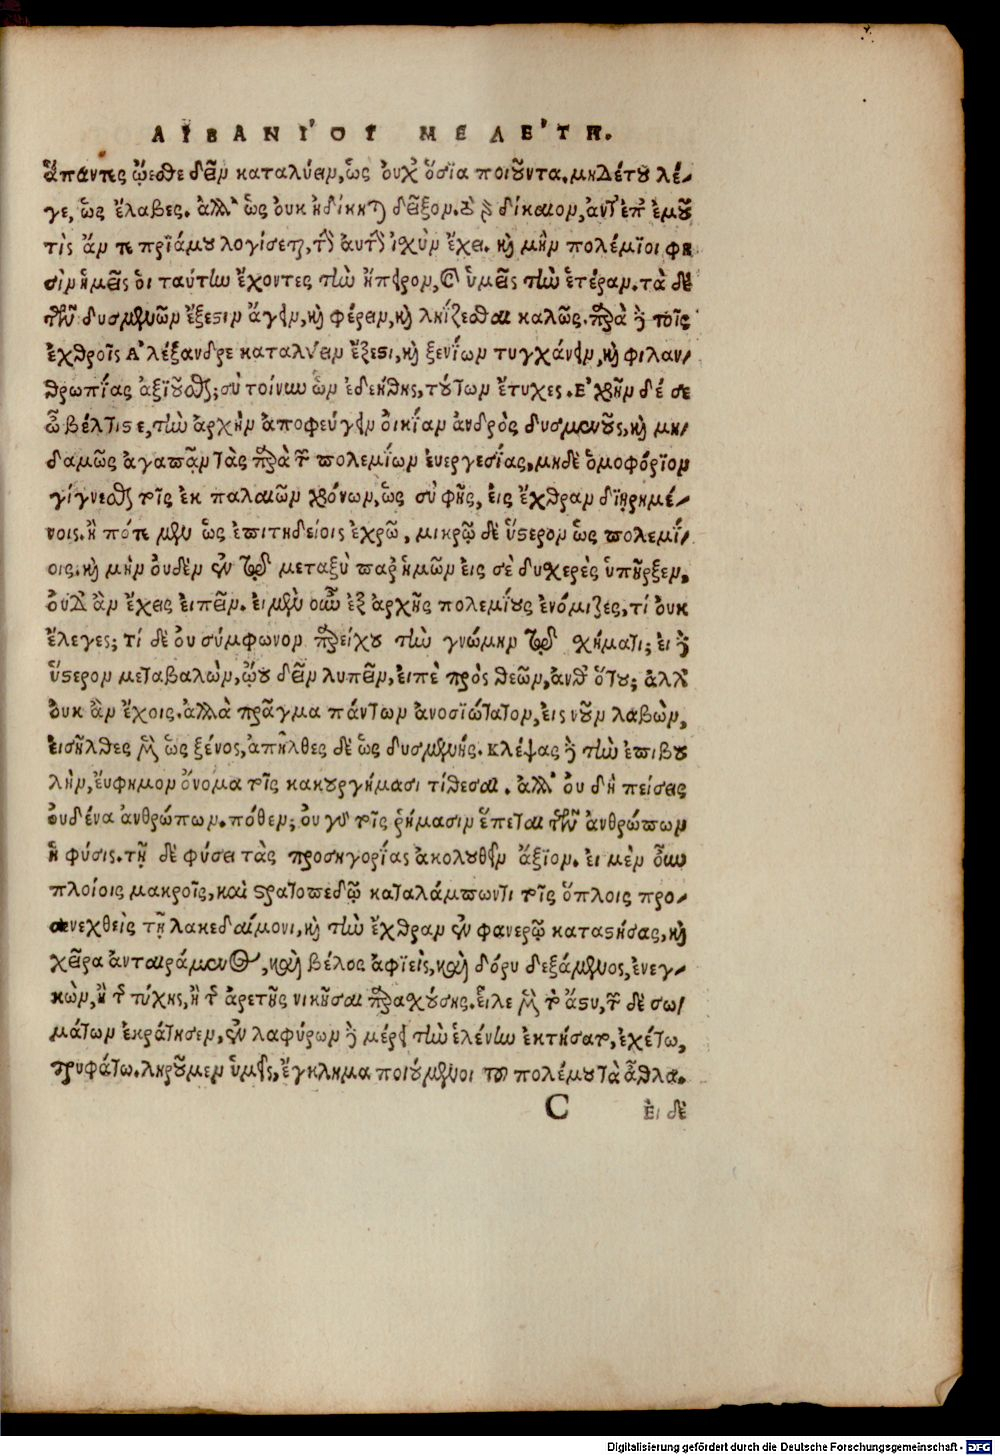 ΛΙΒΑΝΙ´ΟΥ ΜΕΛΕ´ΤΗ.
ἅπαντες ᾤεσθε δεῖν καταλύειν, ὡς οὐχ ὅσϊα ποιοῦντα. μηδέτου λέ-
γε, ὡς ἔλαβες. ἀλλ' ὡς οὐκ ἠδίκησαι δεῖξον. δίκαιον, ἂν ἐπ' ἐμοῦ
τὶς ἄν τε πρϊάμου λογίσεται, τὴν αὐτὴν ἰσχὺν ἔχει. καὶ μὴν πολέμϊοι φη
σὶν ἡμεῖς οἱ ταύτην ἔχοντες τὴν ἤπειρον, καὶ ὑμεῖς τὴν ἑτέραν. τὰ δὲ
τῶν δυσμενῶν ἔξεστιν ἄγειν, καὶ φέρειν, καὶ ληΐζεσθαι καλῶς. παρὰ δὲ τοῖς
ἐχθροῖς Ἀλέξανδρε καταλύειν ἔξεστι, καὶ ξενΐων τυγχάνειν, καὶ φιλαν-
θρωπΐας ἀξιοῦσθαι; σὺ τοίνυν ὧν ἐδεήθης, τούτων ἔτυχες. Ἐχρῆν δέ σε
ὦ βέλτιστε, τὴν ἀρχὴν ἀποφεύγειν οἰκΐαν ἀνδρὸς δυσμενοῦς, καὶ μη-
δαμῶς ἀγαπᾷν τὰς παρὰ τῶν πολεμΐων ἐυεργεσΐας, μηδὲ ὁμοφόρϊον
γίγνεσθαι τοῖς ἐκ παλαιῶν χρόνων, ὡς σὺ φῂς, εἰς ἔχθραν διῃρημέ-
νοις. ἢ πότε μὲν ὡς ἐπιτηδείοις ἐχρῶ, μικρῷ δὲ ὕστερον ὡς πολεμΐ-
οις. καὶ μὴν οὐδὲν ἐν τῷ μεταξὺ παρ' ἡμῶν εἰς σὲ δυσχερὲς ὑπῆρξεν,
οὐδ' ἂν ἔχεις εἰπεῖν. εἰ μὲν οὖν ἐξ ἀρχῆς πολεμΐους ἐνόμιζες, τί οὐκ
ἔλεγες; τί δὲ οὐ σύμφωνον παρείχου τὴν γνώμην τῷ σχήματι; εἰ δὲ
ὕστερον μεταβαλὼν, ᾤου δεῖν λυπεῖν, εἰπὲ πρὸς θεῶν, ἀνθ' ὅτου; ἀλλ'
οὐκ ἂν ἔχοις. ἀλλὰ πρᾶγμα πάντων ἀνοσϊώτατον, εἰς νοῦν λαβὼν,
εἰσῆλθες μὲν ὡς ξένος, ἀπῆλθες δὲ ὡς δυσμενής. κλέψας δὲ τὴν ἐπιβου
λὴν, ἔυφημον ὄνομα τοῖς κακουργήμασι τίθεσαι. ἀλλ' οὐ δὴ πείσεις
οὐδένα ἀνθρώπων. πόθεν; οὐ γὰρ τοῖς ῥήμασιν ἕπεται τῶν ἀνθρώπων
ἡ φύσις. τῇ δὲ φύσει τὰς προσηγορΐας ἀκολουθεῖν ἄξιον. εἰ μὲν οὖν
πλοίοις μακροῖς, καὶ στρατοπέδῳ καταλάμποντι τοῖς ὅπλοις προ-
σενεχθεὶς τῇ λακεδαίμονι, καὶ τὴν ἔχθραν ἐν φανερῷ καταστήσας, καὶ
χεῖρα ἀνταιράμενος, καὶ βέλος ἀφϊεὶς, καὶ δόρυ δεξάμενος, ἐνεγ-
κὼν, ἢ τῆς τύχης, ἢ τῆς ἀρετῆς νικῆσαι παρασχούσης. εἷλε μὲν τὸ ἄστυ, τῶν δὲ σω-
μάτων ἐκράτησεν, ἐν λαφύρων δὲ μέρει τὴν ἑλένην ἐκτήσατο, ἐχέτω,
τρυφάτω. ληροῦμεν ὑμεῖς, ἔγκλημα ποιούμενοι τὰ πολέμου τὰ ἆθλα.
C εἰ δὲ
Digitalisierung gefördert durch die Deutsche Forschungsgemeinschaft - DFG